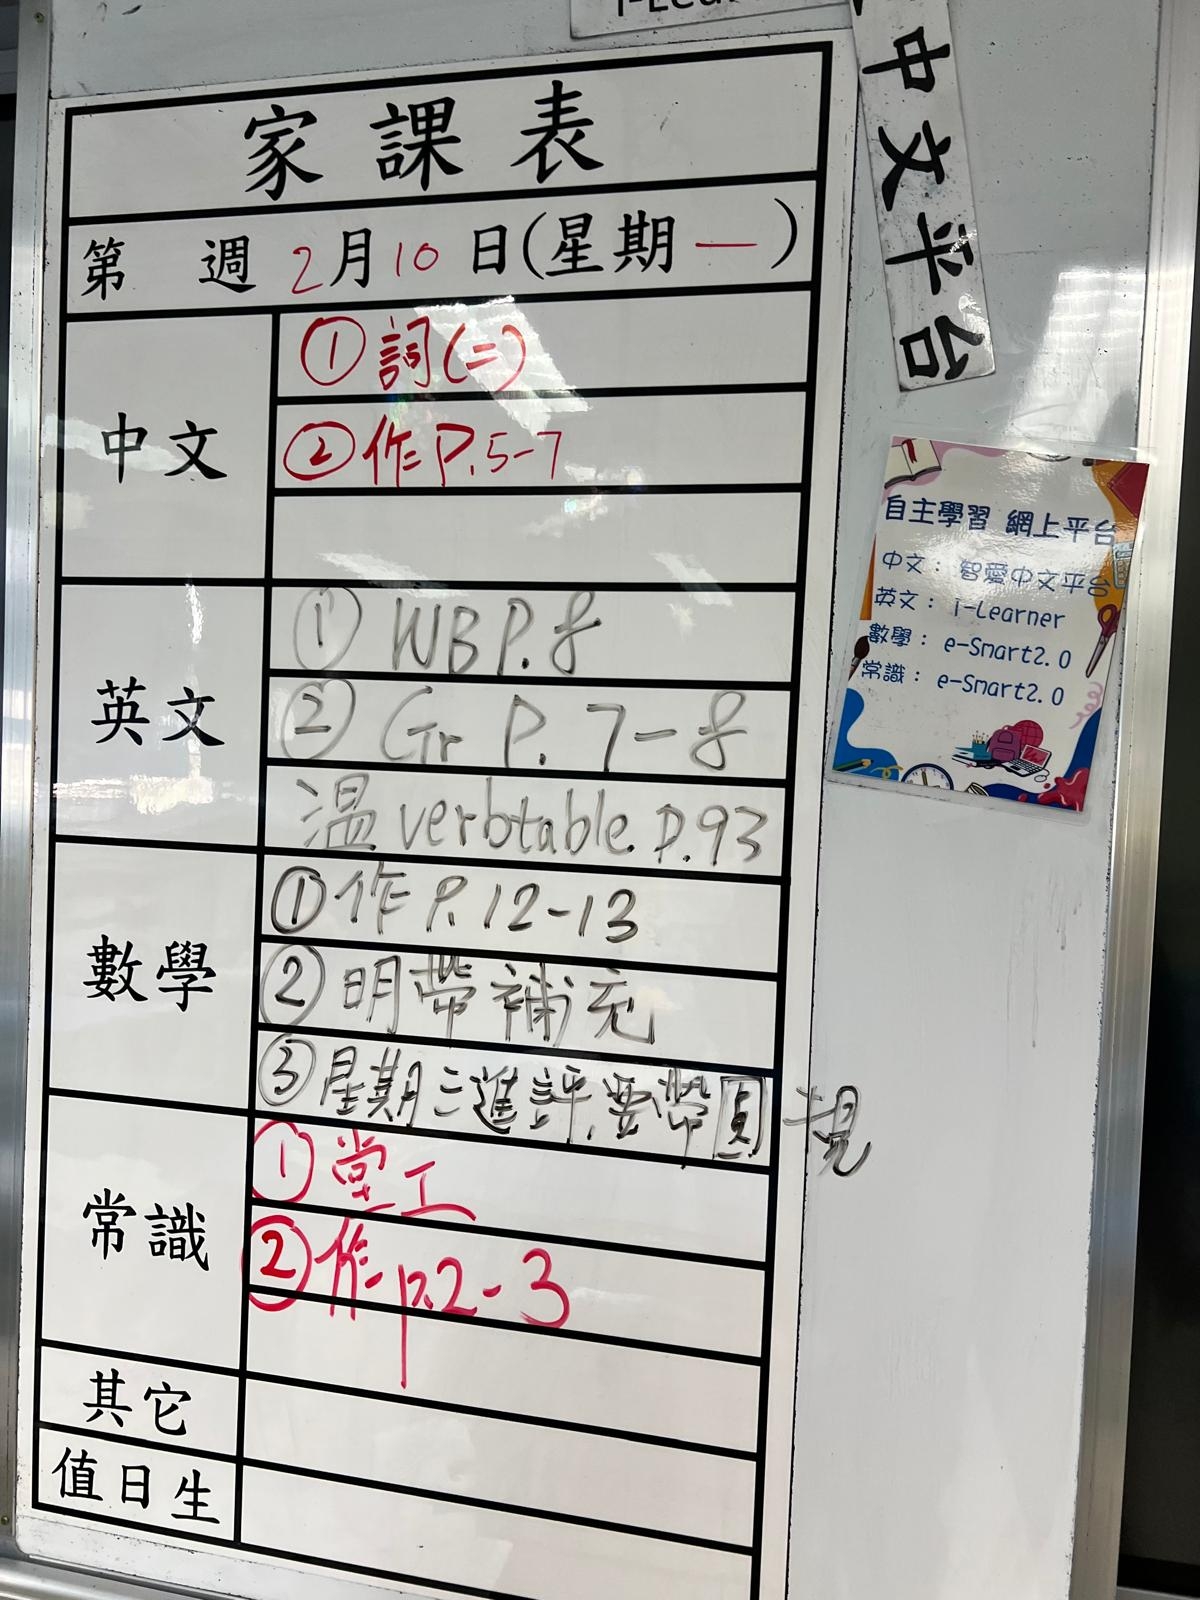 家課表
第 週 2月10日(星期一)
中文
①詞(二)
②作P.5-7
英文
① WB P.8
② Gr P.7-8
溫 verbtable. P.93
數學
①作 P.12-13
②明帶補充
③星期三進評,要帶圓規
常識
①堂工
②作p.2-3
其它
值日生
中文平台
自主學習 網上平台
中文：智愛中文平台
英文：i-Learner
數學：e-Smart2.0
常識：e-Smart2.0